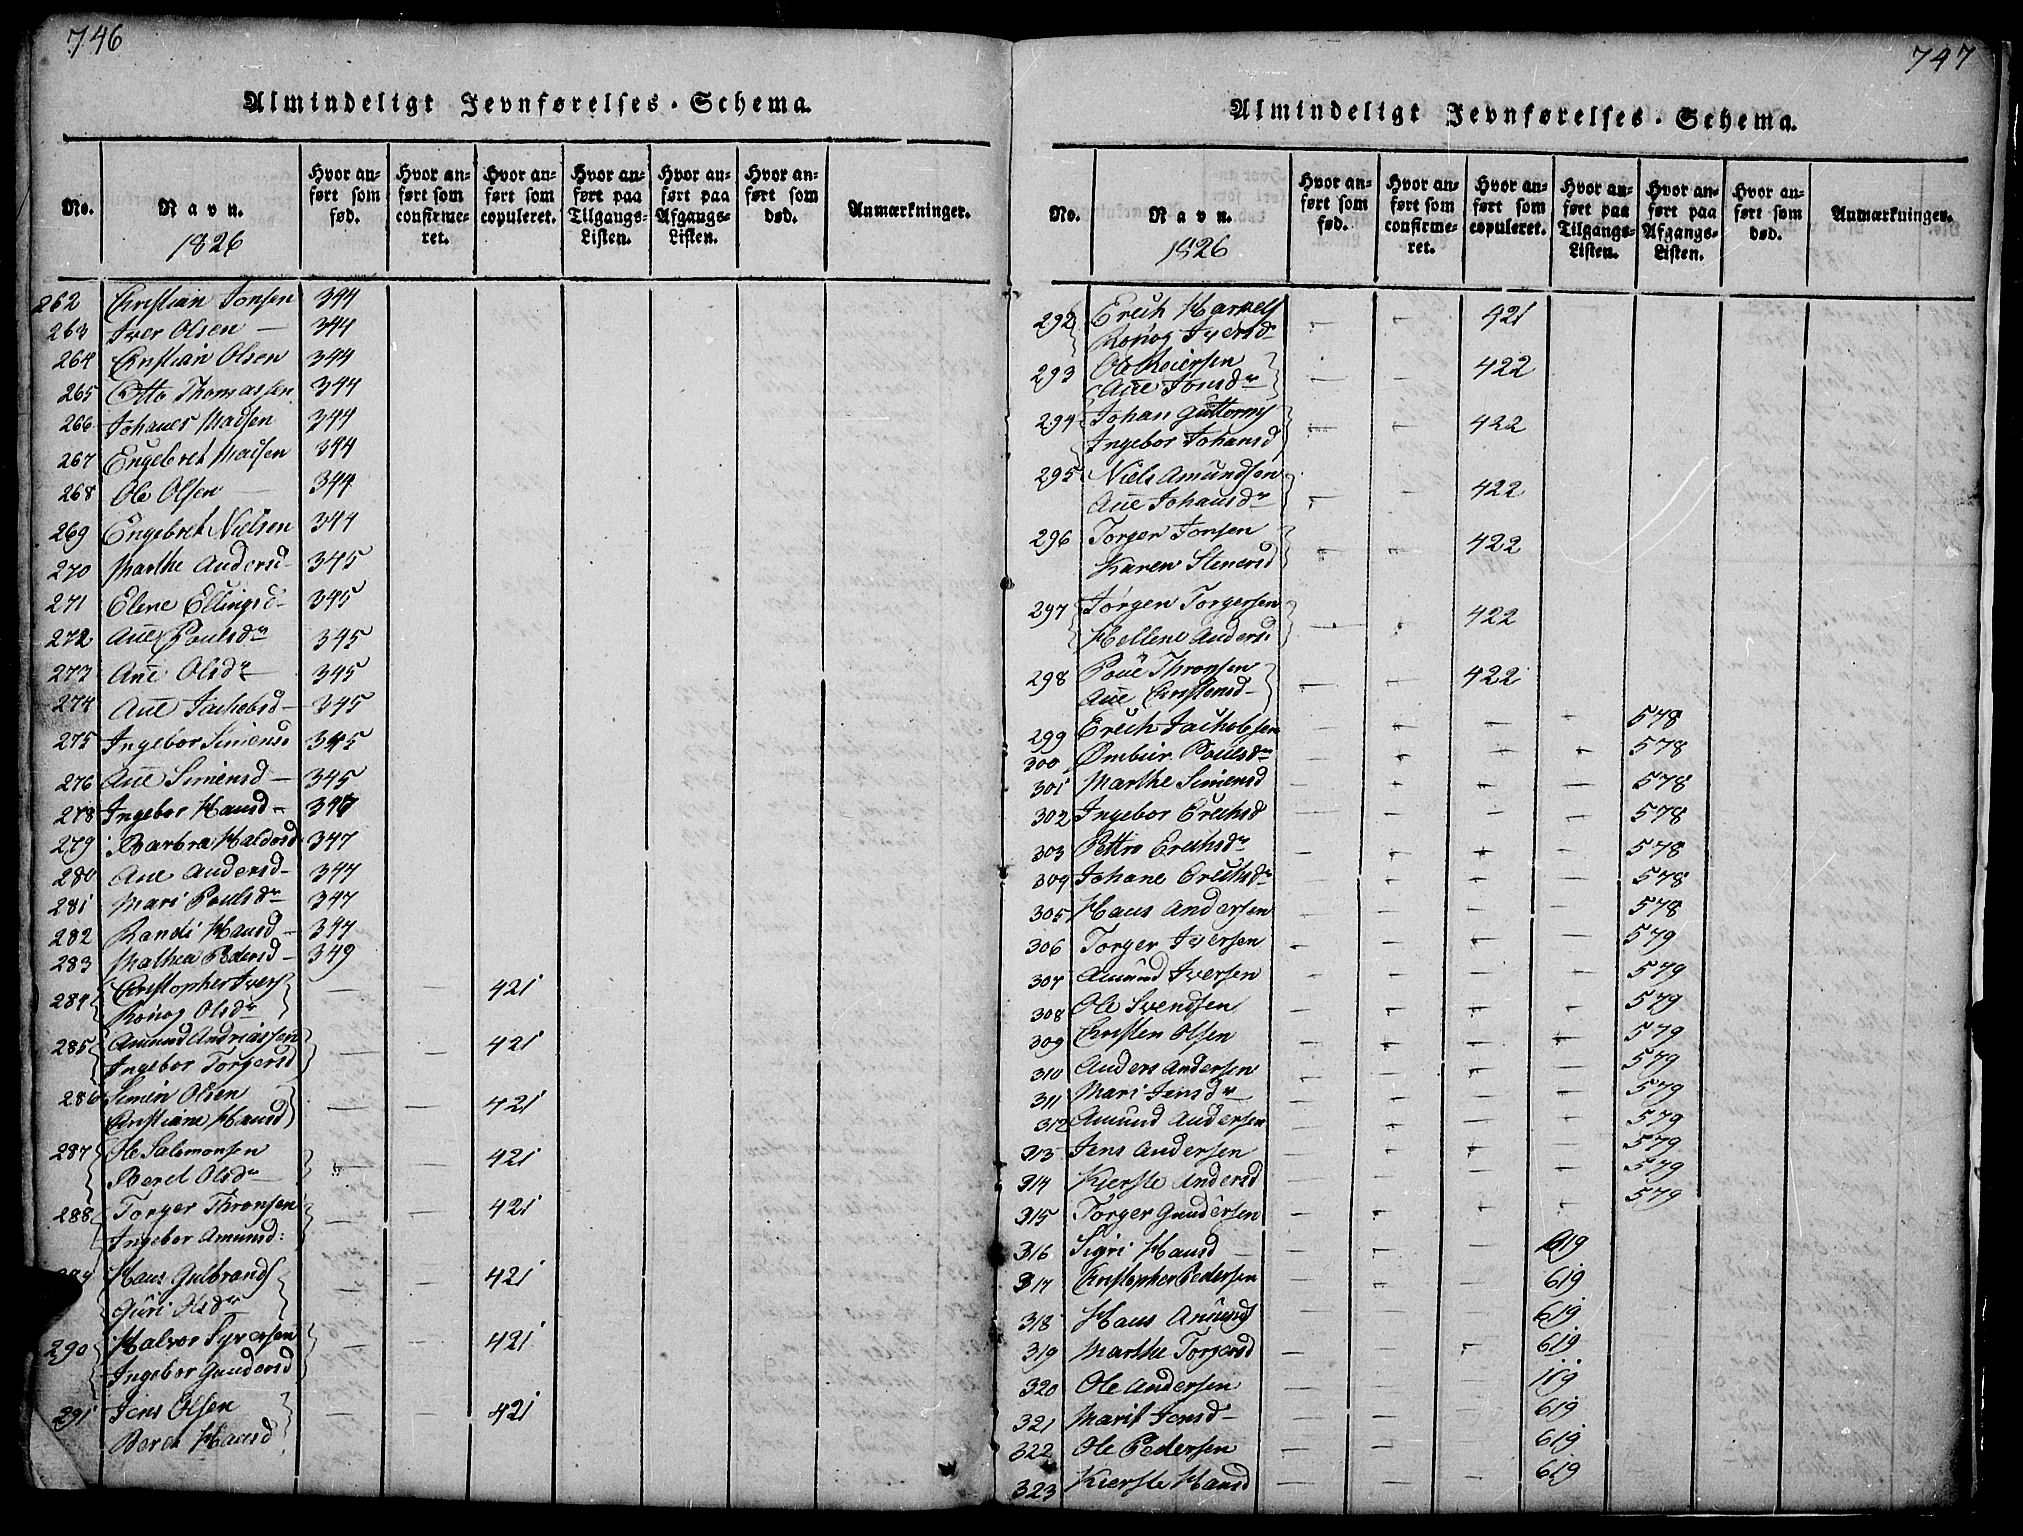 746
Almindeligt Jevnførelses-Schema.
No. Navn. Hvor anført som fød. Hvor anført som confirmeret. Hvor anført som copuleret. Hvor anført paa Tilgangs-Listen. Hvor anført paa Afgangs-Listen. Hvor anført som død. Anmærkninger.
1826
262 Christian Jonsen 344
263 Iver Olsen — 344
264 Christian Olsen 344
265 Otto Thomassen 344
266 Johanes Madsen 344
267 Engebret Madsen 344
268 Ole Olsen — 344
269 Engebret Nielsen 344
270 Marthe Andersd 345
271 Elene Ellingsd 345
272 Añe Poulsdr 345
273 Añe Olsdr — 345
274 Añe Jachobsd — 345
275 Ingebor Simensd 345
276 Añe Simensd — 345
278 Ingebor Hansd — 347
279 Barbra Haldorsd 347
280 Ane Andersd — 347
281 Mari Poulsdr 347
282 Randi Hansd — 347
283 Mathea Pedersd — 349
284 Christopher Ivers
Rönog Olsdr — — 421
285 Amund Andriassen
Ingebor Torgersd — — 421
286 Simen Olsen
Christiane Hansd — — 421
287 Ole Salomonsen
Beret Olsdr — — 421
288 Torger Thronsen
Ingebor Amunsd: — — 421
Hans Gulbrands
Guri Olsdr — — 421
290 Halvor Syversen
Ingebor Gundersd — — 421
291 Jens Olsen
Beret Hansd — — 421
747
Almindeligt Jevnførelses-Schema.
No. Navn. Hvor anført som fød. Hvor anført som confirmeret. Hvor anført som copuleret. Hvor anført paa Tilgangs-Listen. Hvor anført paa Afgangs-Listen. Hvor anført som død. Anmærkninger.
1826
292 Erich
Rönog Iversd — — 421
293 Ole Reiersen
Añe Jonsdr — — 422
294 Johan Guttorms
Ingebor Johansd — — 422
295 Niels Amundsen
Añe Johansdr — — 422
296 Torger Jonsen
Karen Stenersd — — 422
297 Jørgen Torgersen
Hellene Andersd — — 422
298 Thronsen
Añe Christensd — — — 422
299 Erich Jachobsen — — — — 578
300 Poulsdr — — — — 578
301 Marthe Simensd — — — — 578
302 Ingebor Erichsd — — — — 578
303 Erichsdr — — — — 578
304 Johane Erichsdr — — — — 578
305 Hans Andersen — — — — 578
306 Torger Iversen — — — — 579
307 Amund Iversen — — — — 579
308 Ole Svendsen — — — — 579
309 Christen Olsen — — — — 579
310 Anders Andersen — — — — 579
311 Mari Jensdr — — — — 579
312 Amund Andersen — — — — 579
313 Jens Andersen — — — — 579
314 Kierste Andersd — — — — 579
315 Torger Gundersen — — — — 579
316 Sigri Hansd — — — — 619
317 Christopher Pedersen — — — 619
318 Hans Amunds — — — 619
319 Marthe Torgersd — — — 619
320 Ole Andersen — — — 619
321 Marit Jensd — — — — 619
322 Ole Pedersen — — — 619
323 Kierste Hansd — — — 619